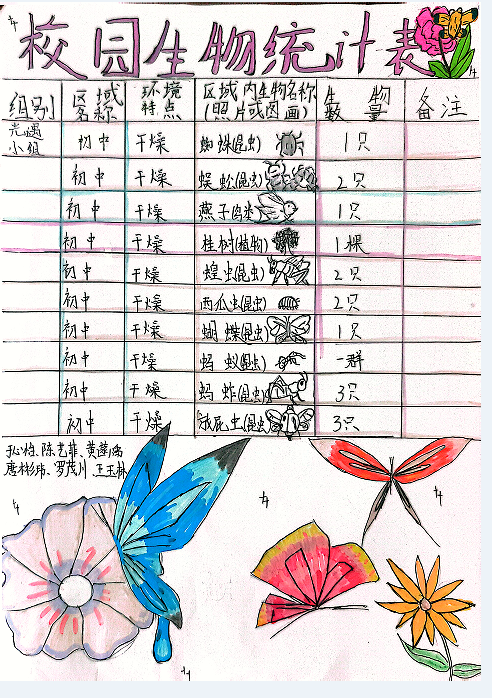 校园生物统计表
组别 区域名称 环境特点 区域内生物名称(照片或图画) 生物数量 备注
光遇小组 初中 干燥 蜘蛛(昆虫) 1只
初中 干燥 蜈蚣(昆虫) 2只
初中 干燥 燕子(鸟类) 1只
初中 干燥 桂树(植物) 1棵
初中 干燥 蝗虫(昆虫) 2只
初中 干燥 西瓜虫(昆虫) 2只
初中 干燥 蝴蝶(昆虫) 1只
初中 干燥 蚂蚁(昆虫) 一群
初中 干燥 蚂蚱(昆虫) 3只
初中 干燥 放屁虫(昆虫) 3只
陈艺菲、黄莲
唐彬玮、罗茂川、王玉林